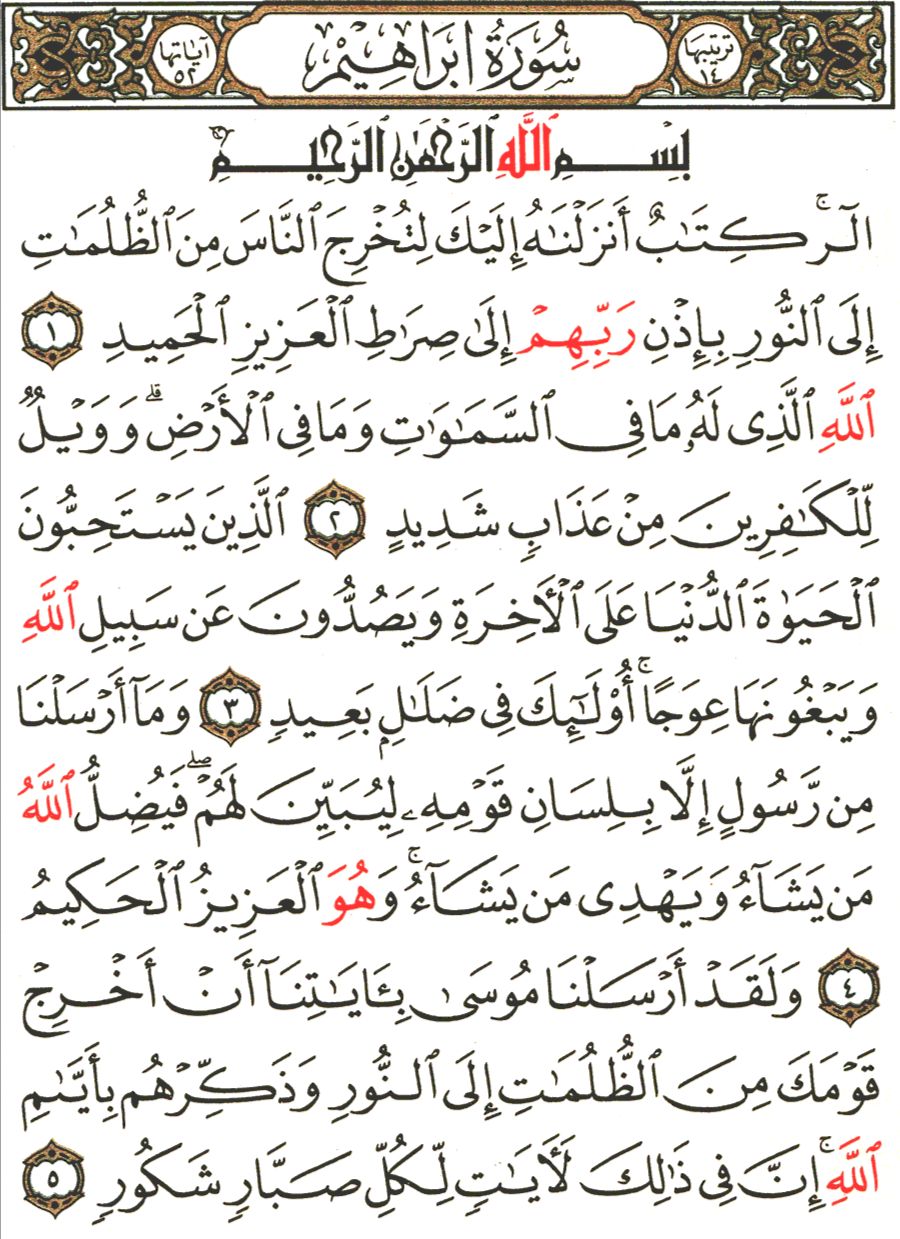 ترتيبها ١٤ سُورَةُ ابْرَاهِيْم آياتها ٥٢
بِسْمِ ٱللَّهِ ٱلرَّحْمَٰنِ ٱلرَّحِيمِ
الٓرۚ كِتَٰبٌ أَنزَلْنَٰهُ إِلَيْكَ لِتُخْرِجَ ٱلنَّاسَ مِنَ ٱلظُّلُمَٰتِ
إِلَى ٱلنُّورِ بِإِذْنِ رَبِّهِمْ إِلَىٰ صِرَٰطِ ٱلْعَزِيزِ ٱلْحَمِيدِ ١
ٱللَّهِ ٱلَّذِى لَهُۥ مَا فِى ٱلسَّمَٰوَٰتِ وَمَا فِى ٱلْأَرْضِۗ وَوَيْلٌ
لِّلْكَٰفِرِينَ مِنْ عَذَابٍ شَدِيدٍ ٢ ٱلَّذِينَ يَسْتَحِبُّونَ
ٱلْحَيَوٰةَ ٱلدُّنْيَا عَلَى ٱلْأَخِرَةِ وَيَصُدُّونَ عَن سَبِيلِ ٱللَّهِ
وَيَبْغُونَهَا عِوَجًاۚ أُو۟لَٰٓئِكَ فِى ضَلَٰلٍۭ بَعِيدٍ ٣ وَمَآ أَرْسَلْنَا
مِن رَّسُولٍ إِلَّا بِلِسَانِ قَوْمِهِۦ لِيُبَيِّنَ لَهُمْۖ فَيُضِلُّ ٱللَّهُ
مَن يَشَآءُ وَيَهْدِى مَن يَشَآءُۚ وَهُوَ ٱلْعَزِيزُ ٱلْحَكِيمُ
٤ وَلَقَدْ أَرْسَلْنَا مُوسَىٰ بِـَٔايَٰتِنَآ أَنْ أَخْرِجْ
قَوْمَكَ مِنَ ٱلظُّلُمَٰتِ إِلَى ٱلنُّورِ وَذَكِّرْهُم بِأَيَّىٰمِ
ٱللَّهِۚ إِنَّ فِى ذَٰلِكَ لَأَيَٰتٍ لِّكُلِّ صَبَّارٍ شَكُورٍ ٥